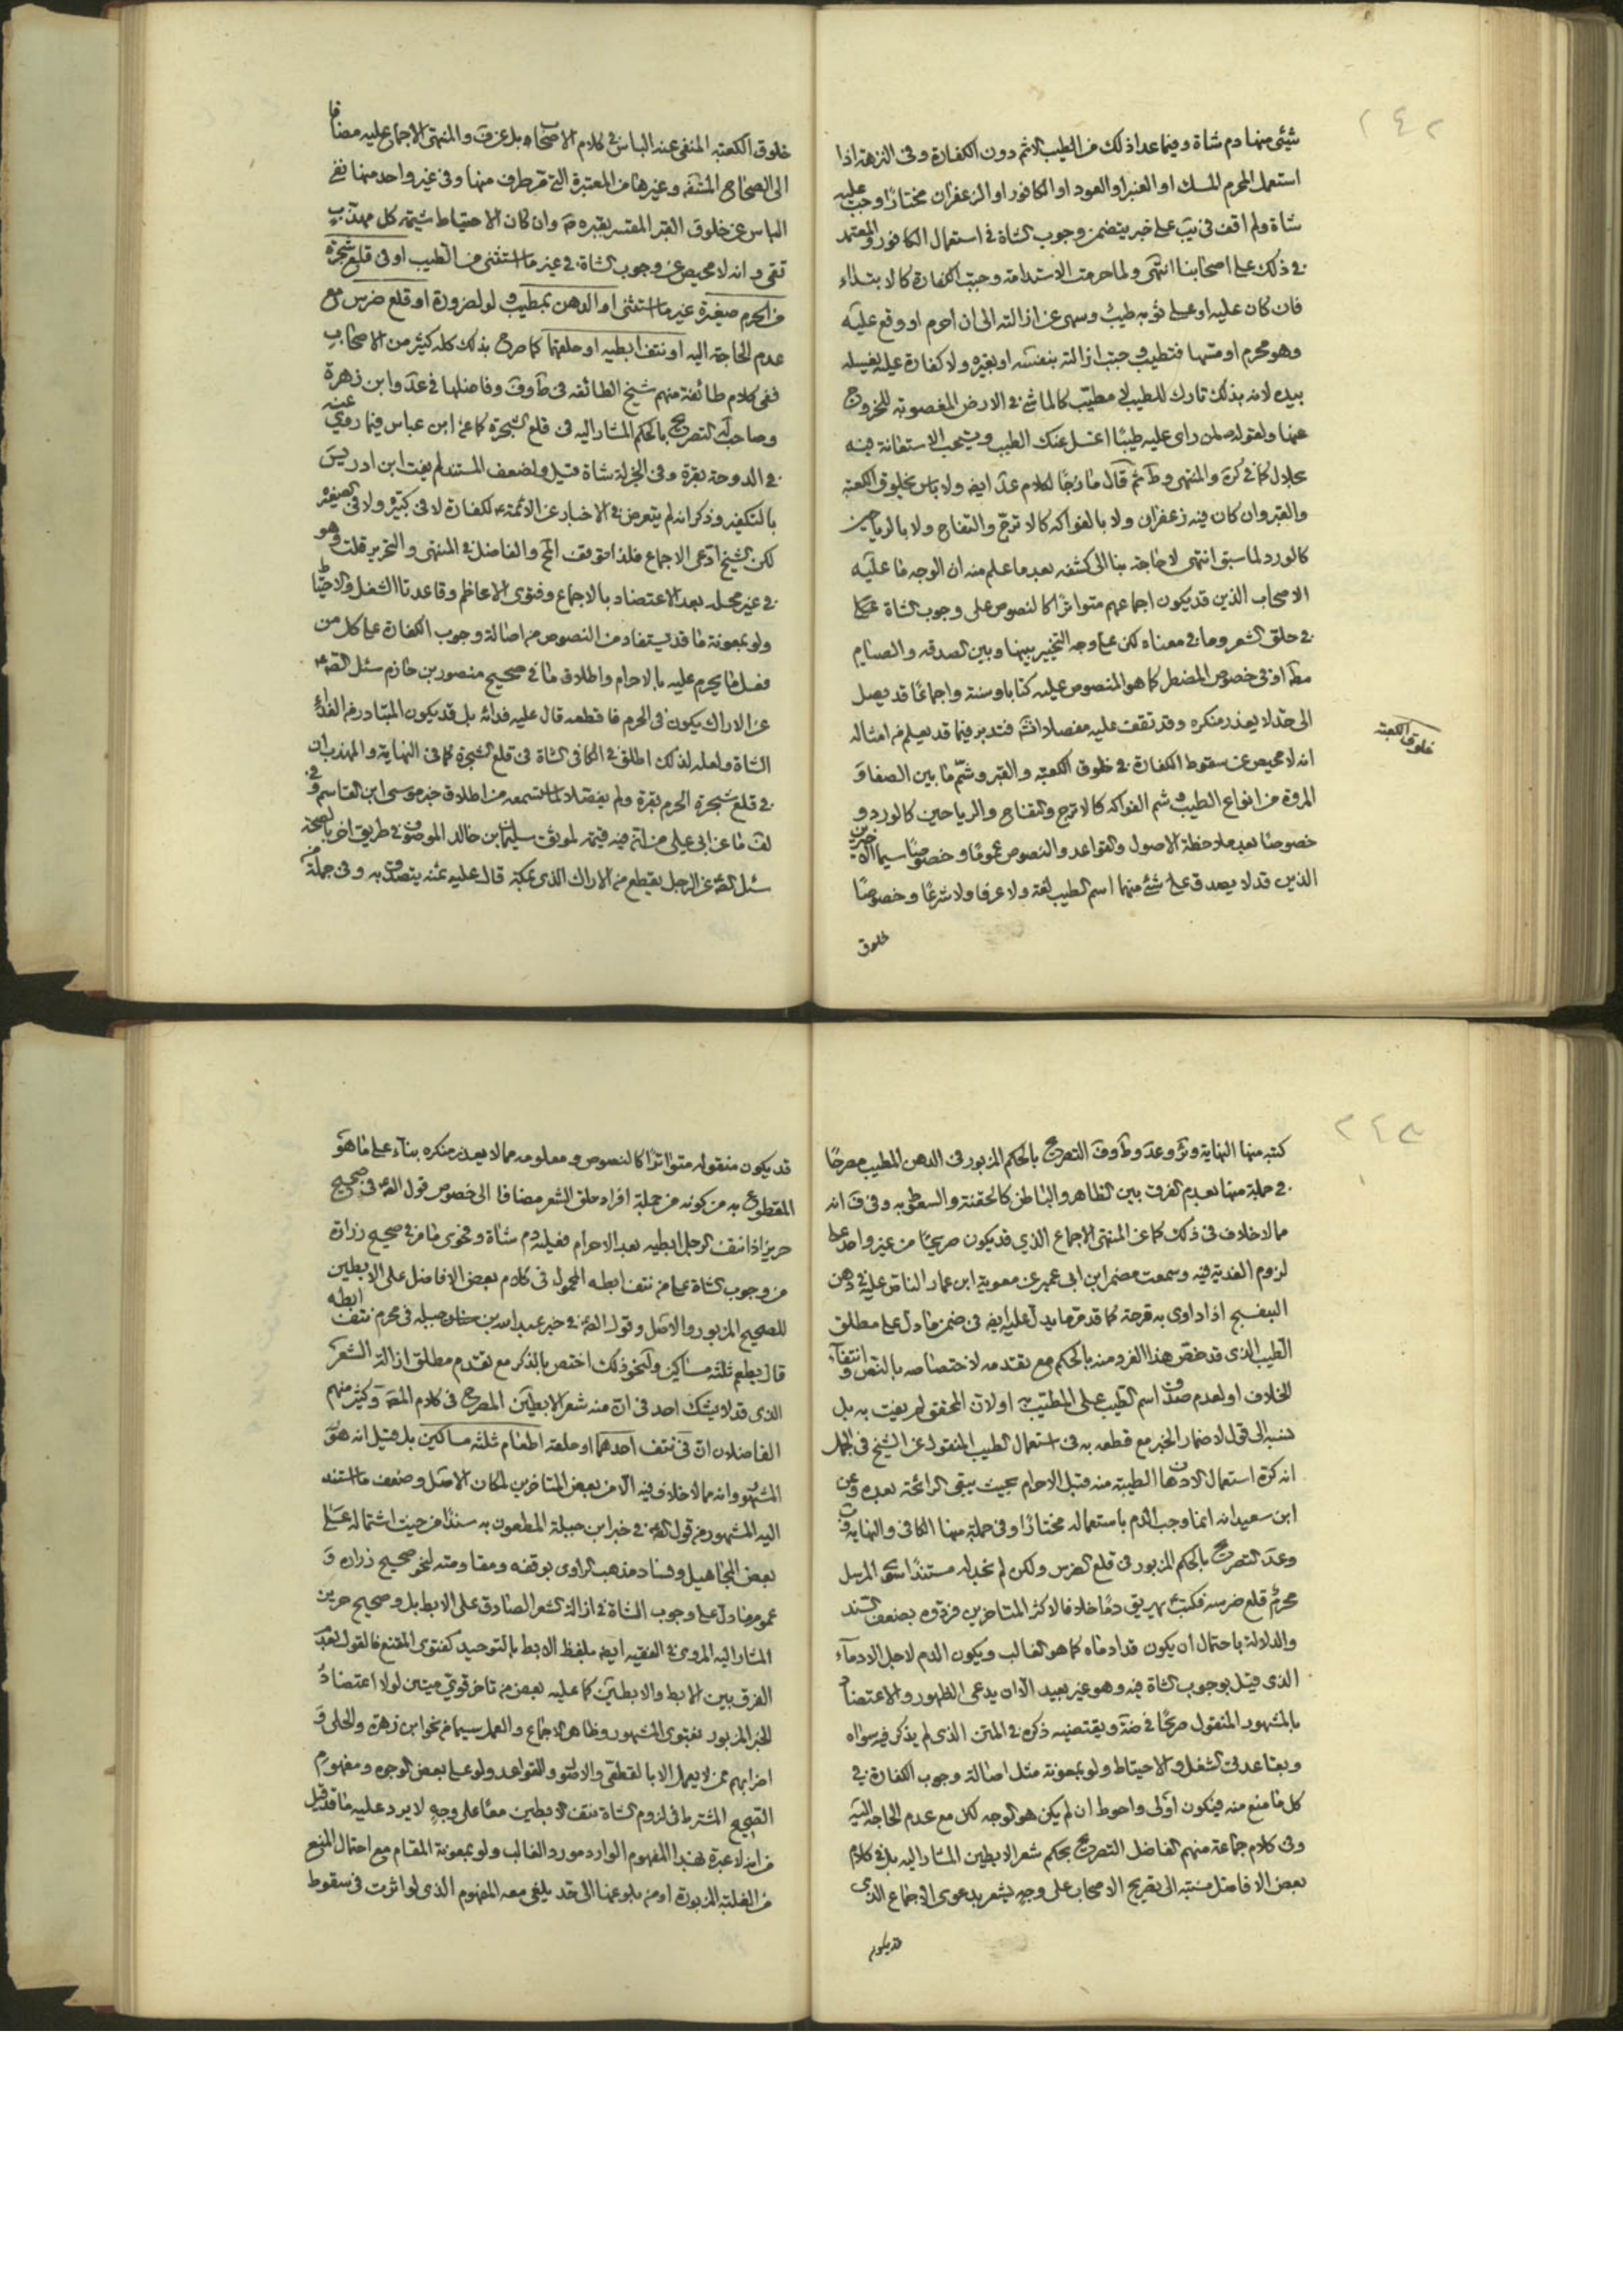 ٢٤٢
شئ منها دم شاة وفيما عدا ذلك من الطيب الاثم دون الكفارة وفى النزهة اذا
استعمل المحرم المسك او العنبر او العود او الكافور او الزعفران مختارا وجب عليه
شاة ولم اقف فى على خبر يتضمن وجوب الشاة فى استعمال الكافور والمعتمد
فى ذلك على اصحابنا انتهى ولما حرمت الاستدامة وجبت الكفارة كالابتداء
فان كان عليه او على ثوبه طيب وسهى عن ازالته الى ان احرم او وقع عليه
وهو محرم او سهى فتطيب وجب ازالته بنفسه او بغيره ولا كفارة عليه بغسله
بيده لانه بذلك تارك للطيب لا متطيب كالماشى فى الارض المغصوبة للخروج
عنها ولقوله لمن راى عليه طيبا اغسل عنك الطيب ويستحب الاستعانة فيه
بحلال كما فى كره والمنتهى و ثم قال مازجا لكلام عد ايضا ولا باس بخلوق الكعبة
والقبر وان كان فيه زعفران ولا بالفواكه كالاترج والتفاح ولا بالرياحين
كالورد لما سبق انتهى لا حاجة بنا الى كشفه بعد ما علم منه ان الوجه ما عليه
الاصحاب الذين قد يكون اجماعهم متواترا كالنصوص على وجوب الشاة
فى حلق الشعر وما فى معناه لكن على وجه التخيير بينها وبين الصدقه والصيام
مطلقا او فى خصوص المضطر كما هو المنصوص عليه كتابا وسنة واجماعا قد يصل
الى حد لا يعذر منكره وقد تقف عليه مفصلا فتدبر فيما قد يعلم من امثاله
انه لا محيص عن سقوط الكفارة فى خلوق الكعبة والقبر وشم ما بين الصفا و
المروة من انواع الطيب وشم الفواكه كالاترج والتفاح والرياحين كالورد و
خصوصا بعد ملاحظة الاصول والقواعد والنصوص عموما وخصوصا سيما الاخيرين
الذين قد لا يصدق على شئ منهما اسم الطيب لغة ولا عرفا ولا شرعا وخصوصا
خلوق
خلوق الكعبة
خلوق الكعبة المنفى عنه الباس فى كلام الاصحاب بل عن ف والمنتهى الاجماع عليه مضافا
الى الصحاح المستفيضة وغيرها من المعتبرة التى مر طرف منها وفى غير واحد منها نفى
الباس عن خلوق القبر المفسر بقبره ص وان كان الاحتياط شيمة كل مهذب
تقى وانه لا محيص عن وجوب الشاة فى غير ما استثنى من الطيب او فى قلع شجرة
من الحرم صغيرة غير ما استثنى او الدهن بمطيب ولو لضرورة او قلع ضرس مع
عدم الحاجة اليه او نتف ابطيه او حلقهما كما صرح بذلك كله كثير من الاصحاب
ففى كلام طائفة منهم شيخ الطائفه فى ط وف وفاضلها فى عد وابن زهرة
وصاحب التصريح بالحكم المشار اليه فى قلع الشجرة كما عن ابن عباس فيما روى عنه
فى الدوحة بقرة وفى الجزلة شاة قيل ولضعف المستند لم يفت ابن ادريس
بالتكفير وذكر انه لم يتعرض فى الاخبار عن الائمة ع لكفارة لا فى كبيرة ولا فى صغيرة
لكن الشيخ ادعى الاجماع فلذا توقف المح والفاضل فى المنتهى والتحرير قلت وهو
فى غير محله بعد الاعتضاد بالاجماع وفتوى الاعاظم وقاعدتا الشغل والاحتياط
ولو بمعونة ما قد يستفاد من النصوص من اصالة وجوب الكفارة على كل من
فعل ما يحرم عليه بالاحرام واطلاق ما فى صحيح منصور بن حازم سئل الص ع
عن الاراك يكون فى الحرم فاقطعه قال عليه فدائه بل قد يكون المتبادر من الفداء
الشاة ولعله لذلك اطلق فى الكافى الشاة فى قلع الشجرة كما فى النهاية والمهذب ان
فى قلع شجرة الحرم بقرة ولم يفصلا لما استسمعه من اطلاق خبر موسى ابن القاسم وفى
لف ما عن ابى على من ان فيه قيمته لموثق سليمان بن خالد الموصوف فى طريق اخر بالصحة
سئل الص ع عن الرجل يقطع من الاراك الذى بمكة قال عليه ثمنه يتصدق به وفى جملة من
٢٤٣
كتبه منها النهاية و وعد وط وف التصريح بالحكم المزبور فى الدهن المطيب مصرحا
فى جملة منها بعدم الفرق بين الظاهر والباطن كالحقنة والسعوط به وفى ف انه
مما لا خلاف فى ذلك كما عن المنتهى الاجماع الذى قد يكون صريحا من غير واحد على
لزوم الفدية فيه وسمعت مضمر ابن ابى عمير عن معوية ابن عمار الناص عليه فى دهن
البنفسج اذا داوى به قرحة كما قد مر ما يدل عليه ايضا فى ضمن ما دل على مطلق
الطيب الذى قد خص هذا الفرد منه بالحكم مع تقدمه لاختصاصه بالنص وانتفاء
الخلاف او لعدم صدق اسم الطيب على المطيب به او لان المحقق لم يفت به بل
نسبه الى قول لاضمار الخبر مع قطعه به فى استعمال الطيب المنقول عن الشيخ فى الجمل
انه كره استعمال الادهان الطيبة منه قبل الاحرام بحيث يبقى الرائحة بعده وعن
ابن سعيد انه انما وجب الدم باستعماله مختارا وفى جملة منها الكافى والنهاية وف
وعد التصريح بالحكم المزبور فى قلع الضرس ولكن لم نجد له مستندا سوى المرسل
محرم قلع ضرسه فكتب ع يهريق دما خلافا لاكثر المتاخرين فردوه بضعف السند
والدلالة باحتمال ان يكون قد ادماه كما هو الغالب ويكون الدم لاجل الادماء
الذى قيل بوجوب الشاة فيه وهو غير بعيد الا ان يدعى الظهور والاعتضاد
بالمشهور المنقول صريحا فى ضة ويقتضيه ذكره فى المتن الذى لم يذكر فيه سواه
وبقاعدتى الشغل والاحتياط ولو بمعونة مثل اصالة وجوب الكفارة فى
كل ما منع منه فيكون اولى واحوط ان لم يكن هو الوجه لكن مع عدم الحاجة اليه
وفى كلام جماعة منهم الفاضل التصريح بحكم شعر الابطين المشار اليه بل فى كلام
بعض الافاضل نسبته الى تصريح الاصحاب على وجه يشعر بدعوى الاجماع الذى
قد يكون
قد يكون منقوله متواترا كالنصوص ومعلومه مما لا يعذر منكره بناء على ما هو
المقطوع به من كونه من جملة افراد حلق الشعر مضافا الى خصوص قول الص ع فى صحيح
حريز اذا نتف الرجل ابطيه بعد الاحرام فعليه دم شاة وفحوى ما مر فى صحيح زرارة
من وجوب الشاة على من نتف ابطه المحمول فى كلام بعض الافاضل على الابطين
للصحيح المزبور والاصل وقول الص ع فى خبر عبد الله بن جبله فى محرم نتف ابطه
قال يطعم ثلثة مساكين ولنحو ذلك اختص بالذكر مع تقدم مطلق ازالة الشعر
الذى قد لا يشك احد فى ان منه شعر الابطين المصرح فى كلام المص وكثير منهم
الفاضلان ان فى نتف احدهما او حلقه اطعام ثلثة مساكين بل قيل انه هو
المشهور وانه مما لا خلاف فيه الا من بعض المتاخرين لمكان الاصل وضعف ما استند
اليه المشهور من قول الص ع فى خبر ابن جبلة المطعون به سندا من حيث اشتماله على
بعض المجاهيل وفساد مذهب الراوى بوقفه ومقاومته لنحو صحيح زراره و
عموم ما دل على وجوب الشاة فى ازالة الشعر الصادق على الابط بل وصحيح حريز
المشار اليه المروى فى الفقيه ايضا بلفظ الابط بالتوحيد كفتوى المقنع فالقول بعدم
الفرق بين الابط والابطين كما عليه بعض من تاخر قوى متين لولا اعتضاد
الخبر المزبور بفتوى المشهور وظاهر الاجماع والعمل سيما من نحو ابن زهرة والحلى و
اضرابهم ممن لا يعمل الا بالقطعى والاصول والقواعد ولو على بعض الوجوه ومفهوم
الصحيح المشترط فى لزوم الشاة نتف الابطين معا على وجه لا يرد عليه ما قد قيل
من انه لا عبرة بهذا المفهوم الوارد مورد الغالب ولو بمعونة المقام مع احتمال المنع
من الغلبة المزبورة او من بلوغها الى حد يلغى معه المفهوم الذى لو اثرت فى سقوط